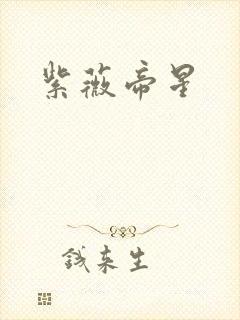 紫薇帝星
钱来生